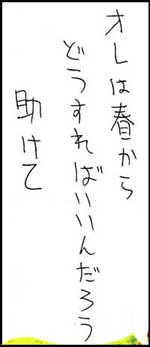 オレは春から
どうすればいいんだろう
助けて